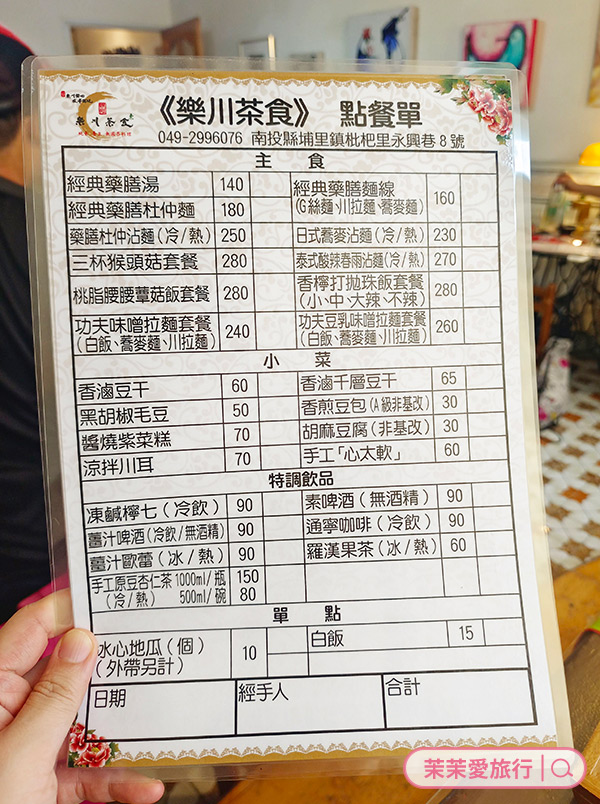 樂川茶食
《樂川茶食》 點餐單
049-2996076 南投縣埔里鎮枇杷里永興巷8號
主 食
經典藥膳湯 140
經典藥膳麵線
(G絲麵、川拉麵、蕎麥麵) 160
經典藥膳杜仲麵 180
藥膳杜仲沾麵(冷/熱) 250
日式蕎麥沾麵(冷/熱) 230
三杯猴頭菇套餐 280
泰式酸辣春雨沾麵(冷/熱) 270
桃脂腰腰蕈菇飯套餐 280
香檸打拋珠飯套餐
(小、中、大辣、不辣) 280
功夫味噌拉麵套餐
(白飯、蕎麥麵、川拉麵) 240
功夫豆乳味噌拉麵套餐
(白飯、蕎麥麵、川拉麵) 260
小 菜
香滷豆干 60
香滷千層豆干 65
黑胡椒毛豆 50
香煎豆包(A級非基改) 30
醬燒紫菜糕 70
胡麻豆腐(非基改) 30
涼拌川耳 70
手工「心太軟」 60
特調飲品
凍鹹檸七(冷飲) 90
素啤酒(無酒精) 90
薑汁啤酒(冷飲/無酒精) 90
通寧咖啡(冷飲) 90
薑汁歐蕾(冰/熱) 90
羅漢果茶(冰/熱) 60
手工原豆杏仁茶 1000ml/瓶 150
(冷/熱) 500ml/碗 80
單 點
冰心地瓜(個)
(外帶另計) 10
白飯 15
日期
經手人
合計
茉茉愛旅行